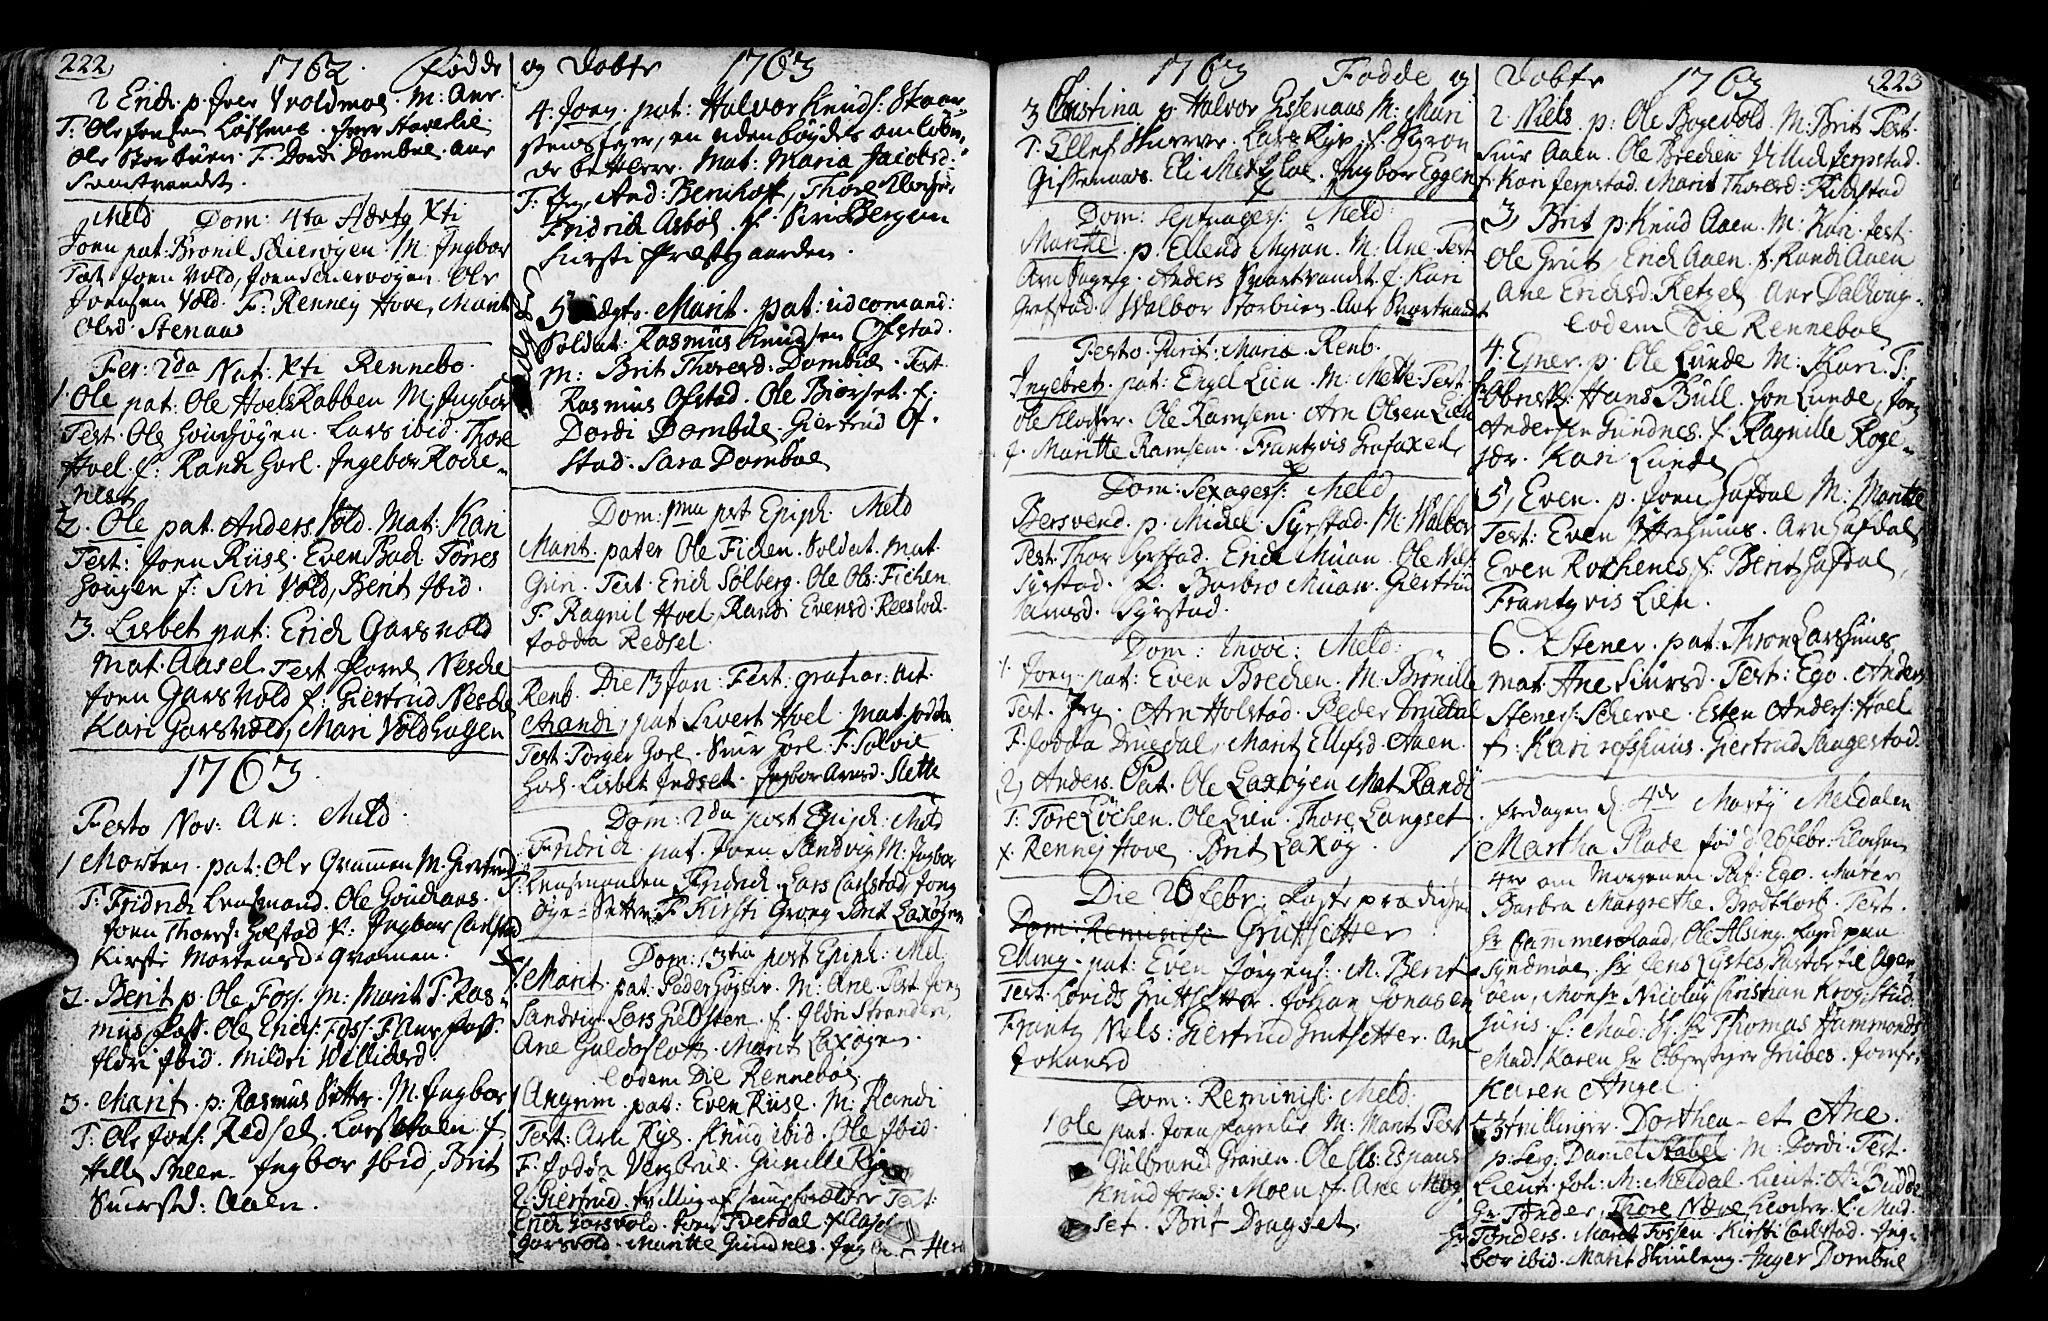 222
1762. Fødde
2 Erich p. Iver Vvoldmoe. M: Ane.
T: Ole Jensen Løchens. Iver Haverlie
Ole Storbuen. F. Dordi Dombue. Ane
Svartvandet.
Meld Dom: 4ta Advte Xti
Joen pat: Bronil Schierøgen M: Ingbor
Test Joen Vold, Joen Schierøgen. Ole
Jonsen Vold. F: Renney Hove, Marit
Olsd. Stenaas
Fer: 2da Nat: Xti Rennebo.
1. Ole pat: Ole Hoelskabben M: Ingbor
Test. Ole Houghøgen. Lars ibid. Thore
Hoel. f: Randi Hoel. Ingebor Roche-
nest
2. Ole pat. Anders Vold. Mat: Kari
Test: Joen Riise. Even Bach Tørres
Hougen f: Siri Vold, Berit Ibid.
3. Lisbet pat: Erich Garsvold
Mat. Aasel. Test Povel Nesche
Joen Garsvold f: Giertrud Nesche
Kari Garsvold, Mari Voldhagen
1763.
Festo Nov: An: Meld.
1 Morten. pat: Ole Gramen M: Giertrud
T: Fridrich Lensmand. Ole Goudaas.
Joen Thores: Holstad f: Ingbor Carlstad
Kirsti Mortensd. Gramen.
2. Berit p. Ole Foss. M: Marit T. Ras-
mus Foss. Ole Erichs: Foss. F. Ane Foss.
Eldri Ibid. Mildri Willichsd
3. Marit. p: Rasmus Setter. M. Ingbor
T. Ole Jons: Redsel. Lars Aalen. f.
Hille Skeen. Ingbor Ibid, Brit
Siversd: Aaen.
og Døbte 1763
4. Joen. pat: Halvor Knuds: Skaar-
stensfeyer, en udenbøydes omløben-
de betlere. Mat: Maria Jacobsd:
T: Jeg, And: Bernhoft, Thore Klocher
Fridrich Asbøl. f. Siri Bergen
Kirsti Præstegaarden.
5 Uægte. Marit. pat: udcomand:
Soldat: Rasmus Knudsen Ofstad.
M: Brit Thoresd. Dombue. Test.
Rasmus Ofstad. Ole Bierset. f.
Dordi Dombue. Giertrud Of-
stad. Sara Dombue
Dom. 1ma post Epiph. Meld
Marit. pater Ole Fichen. Soldat. Mat.
Guri. Test. Erich Solberg. Ole Ols: Fichen
F. Ragnil Hoel, Randi Evensd. Reestad.
Jodda Redsel.
Renb. Die 13 Jan: Fest: gratiar: act.
Randi, pat Sivert Hoel. Mat. Jodda
Test. Torger Hoel. Siur Hoel. F. Solvie
Hoel. Lisbet Indset. Ingbor Arnsd. Slette
Dom: 2da post Epiph: Meld
Fridrich. pat. Joen Sandvig M: Ingbor
T. Lensmanden Fridrich. Lars Carlstad, Joen
Øye-Setter. F. Kirsti Groeg. Brit Laxøgen
Dom: 3tia post Epiph: Mel.
1. Marit. pat: Peder Høglie. M: Ane. Test. Joen
Sandvig. Lars Gieldsten. f. Ildri Stranden,
Ane Guldoslott. Marit Laxøgen.
Eodem Die Renneboe.
1 Angrim. pat: Even Riise. M: Randi
Test: Arn Rye. Knud ibid. Ole Ibid.
F. Jodda Vergbrue. Gunille Rye
2. Giertrud. tvilling af samme forældre Test:
Erich Garsvold. Joen Druedal. f. Aasel
Garsvold. Maritte Gundnes. Ing
1763 Fødde og
3 Christina p. Halvor Gissenaas M: Mari
T. Ellef Skurver. Lars Rye. f. Sigron
Gissenaas. Eli Medgloe. Ingbor Eggen
Dom: Septuages: Meld:
Maritte. p. Ellend Myran. M: Ane. Test
Arn Ingerg. Anders Svartvandet f. Kari
Grefstad. Walbor Storbuen. Ane Svartvandet
Festo. Purif: Mariæ. Renb.
Ingebret. pat: Engel Lien. M: Mette Test
Ole Klocker. Ole Ramsem. Arn Olsen Lien
f. Maritte Ramsem. Frantzvis Grafaxel
Dom: Sexagess: Meld
Bersvend. p. Michel Syrstad. M. Walbor
Test. Thor Syrstad. Erich Muan. Ole Nils:
Syrstad. f. Barbro Muan. Giertrud
Larsd. Syrstad.
Dom: Invoc: Meld:
1. Joen. pat: Even Brechen. M. Brønille
Test. Jeg. Arn Holstad. Peder Druedal
F. Jodda Druedal, Marit Ellefsd. Aaen.
2, Anders. Pat. Ole Laxøgen Mat Randi
T: Tore Løchen. Ole Lien. Thore Langset
f. Renney Hove. Brit Laxøg.
Die 26 febr: Faste prædiken
Dom. Reminisc: Grutsetter
Elling. pat: Even Jørgens: M. Berit
Test. Lovids Grutsetter. Johan Jonasen
Frantz Niels: Giertrud Grutsetter. Ane
Johansd
Dom: Reminisc: Meld:
1 Ole pat. Joen Fagerlie M: Marit Test
Gulbrand Granen. Ole Els: Espaas
Knud Jons: Moen f. Ane Mog-
set. Brit Dragset.
Døbte 1763 223
2. Niels. p: Ole Bogevold. M: Brit Test.
Siur Aaen. Ole Brechen Villich Jerpstad.
f. Kari Jerpstad. Marit Thoresd: Rikstad
3, Brit p. Knud Aaen. M: Kari. Test.
Ole Grut, Erich Aaen. f. Randi Aaen
Ane Erichsd. Retzel Ane Dalhoug.
Eodem Die Renneboe
4. Esner. p. Ole Lunde M: Kari. T:
Hans Bull. Jon Lunde, Joen
Andersen Gundnes. f. Ragnille Roge-
Kari Lunde
5, Even. p. Joen Hafdal M: Maritte
Test: Even Arn Hafdal
Even Rochenes f. Berit Hafdal,
Frantzvis Lien.
6. Stener. pat: Thron Larshuus
Mat: Ane Siursd. Test: Ego. Anders
Steners: Scherve. Esten Anders: Hoel
f: Kari refshuus. Giertrud Langestad.
Fredagen d. 4de Martÿ Meldalen
1 Martha Plade fød d. 26 febr: Klochen
4re om Morgenen Pat: Ego. Mater
Barbra Margrethe. Brodtkorb. Test.
Hr Cammerraad, Ole Alsing. Capellan
Syndmøe. Hr Jens Lystes. Pastor til Ager-
øen, Monsr Nicolay Christian Krog, Stud.
Juris. f: Mad. Sl. Hr Thomas Hammonds
Mad. Karen Hr Obristyer Grubes. Jomfr.
Karen Angel.
2, 3, tvillinger. Dorthea et Ane.
p. Serg: Daniel Stabel. M: Dordi. Test.
Lieut. Joh: M: Meldal. Lieut: A: Budde
Hr Tønder, Thore Næve Klocker f. Mad.
Hr Tønders. Marit Fossen. Kirsti Carlstad. Ing-
bor ibid. Marit Skinleng. Inger Dombue